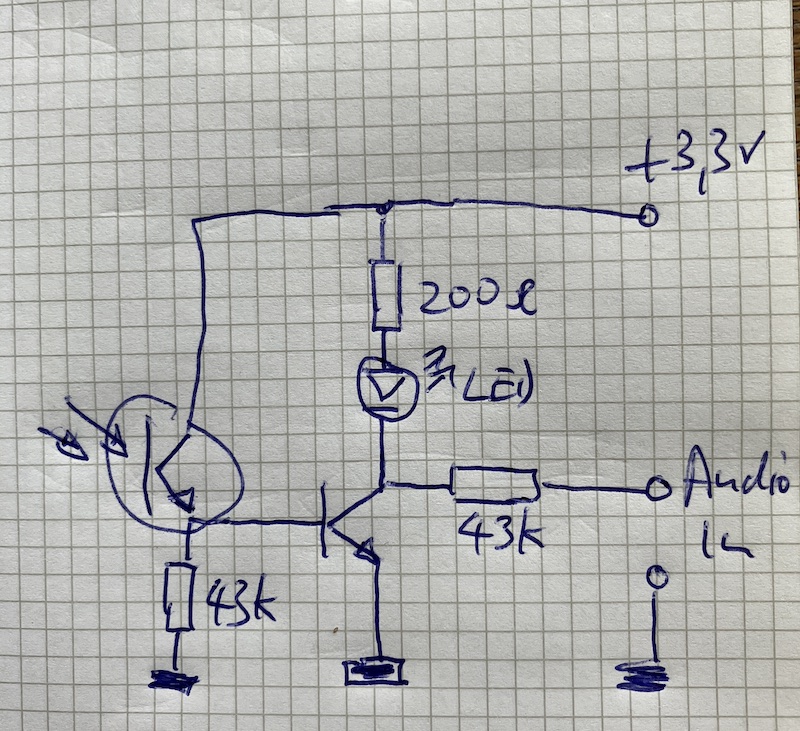 +3,3V
200Ω
LED
Audio
In
43k
43k